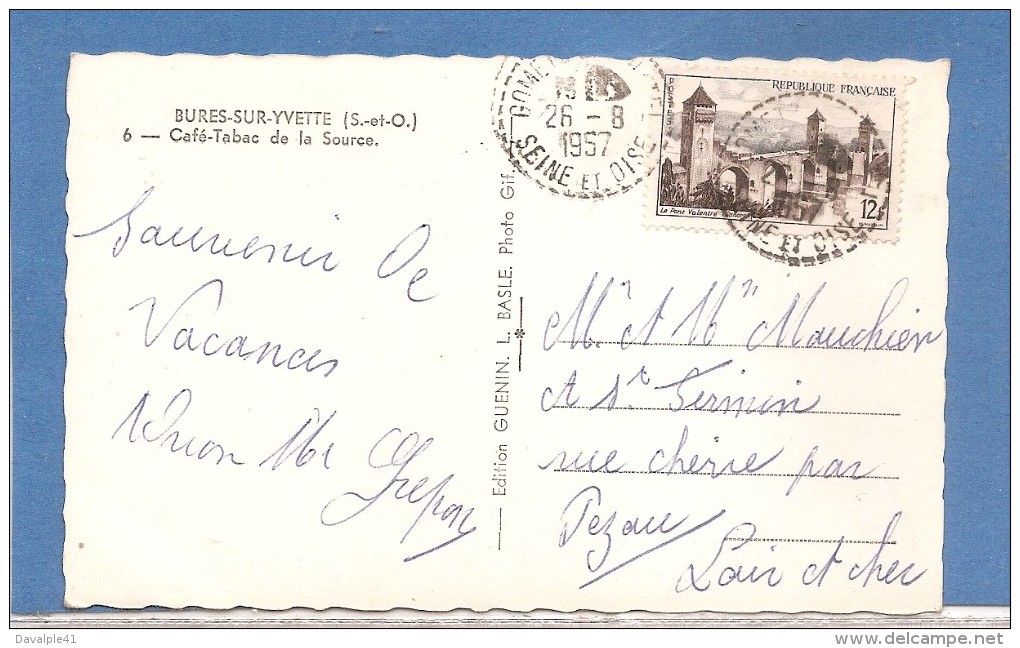 BURES-SUR-YVETTE (S.-et-O.)
6 — Café-Tabac de la Source.
Souvenir De
Vacances
Edition GUENIN. L. BASLE. Photo Gif.
26 - 8
1957
SEINE ET OISE
REPUBLIQUE FRANÇAISE
POSTES
Le Pont Valentré
12f
NE ET OISE
Mr et Mme Mauchien
et
rue chérie par
Pezou
Loir et cher
Davalple41
www.delcampe.net